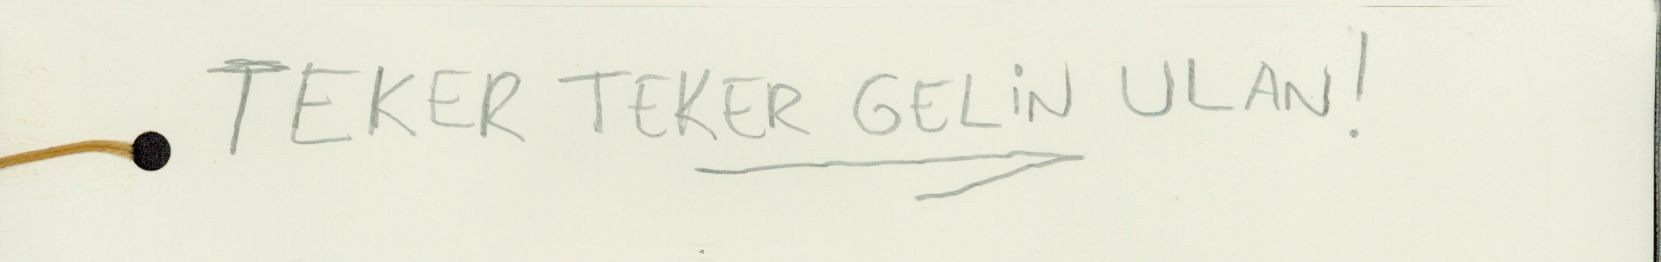 TEKER TEKER GELİN ULAN!